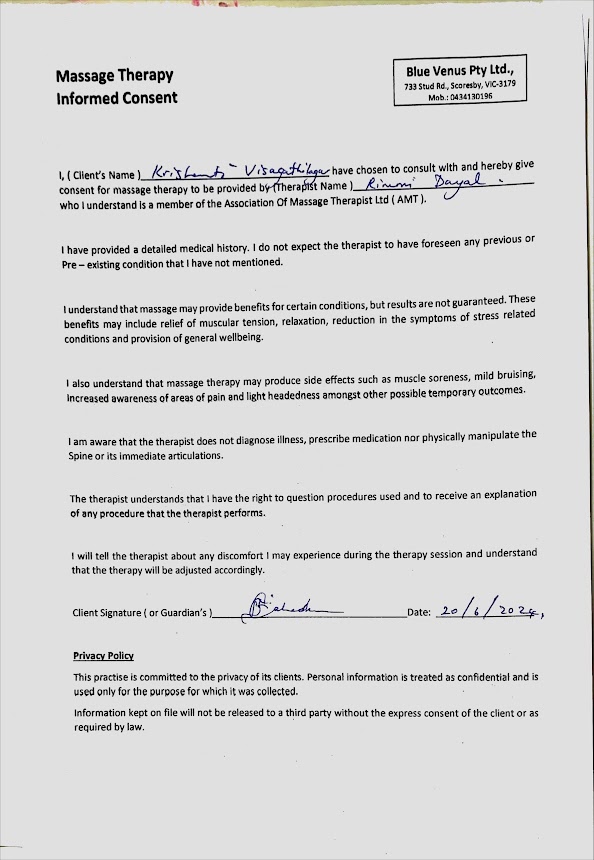 Massage Therapy
Informed Consent
Blue Venus Pty Ltd.,
733 Stud Rd., Scoresby, VIC-3179
Mob.: 0434130196
I, ( Client's Name ) have chosen to consult with and hereby give
consent for massage therapy to be provided by (Therapist Name ) Dayal
who I understand is a member of the Association Of Massage Therapist Ltd ( AMT ).
I have provided a detailed medical history. I do not expect the therapist to have foreseen any previous or
Pre – existing condition that I have not mentioned.
I understand that massage may provide benefits for certain conditions, but results are not guaranteed. These
benefits may include relief of muscular tension, relaxation, reduction in the symptoms of stress related
conditions and provision of general wellbeing.
I also understand that massage therapy may produce side effects such as muscle soreness, mild bruising,
increased awareness of areas of pain and light headedness amongst other possible temporary outcomes.
I am aware that the therapist does not diagnose illness, prescribe medication nor physically manipulate the
Spine or its immediate articulations.
The therapist understands that I have the right to question procedures used and to receive an explanation
of any procedure that the therapist performs.
I will tell the therapist about any discomfort I may experience during the therapy session and understand
that the therapy will be adjusted accordingly.
Client Signature ( or Guardian's ) Date: 20/6/2024,
Privacy Policy
This practise is committed to the privacy of its clients. Personal information is treated as confidential and is
used only for the purpose for which it was collected.
Information kept on file will not be released to a third party without the express consent of the client or as
required by law.